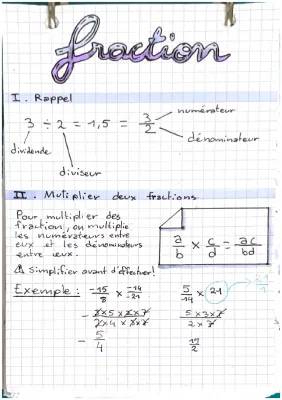 fraction
I. Rappel
3 ÷ 2 = 1,5 = 3/2
numérateur
dénominateur
dividende
diviseur
II. Mutiplier deux fractions
Pour multiplier des
fraction, on multiplie
les numérateurs entre
eux et les dénominateurs
entre eux.
a/b × c/d = ac/bd
⚠ simplifier avant d'effectuer!
Exemple : -15/8 × -14/-21
5/14 × 21
21/1
- 3×5×2×7 / 2×4×3×7
5×3×7 / 2×7
- 5/4